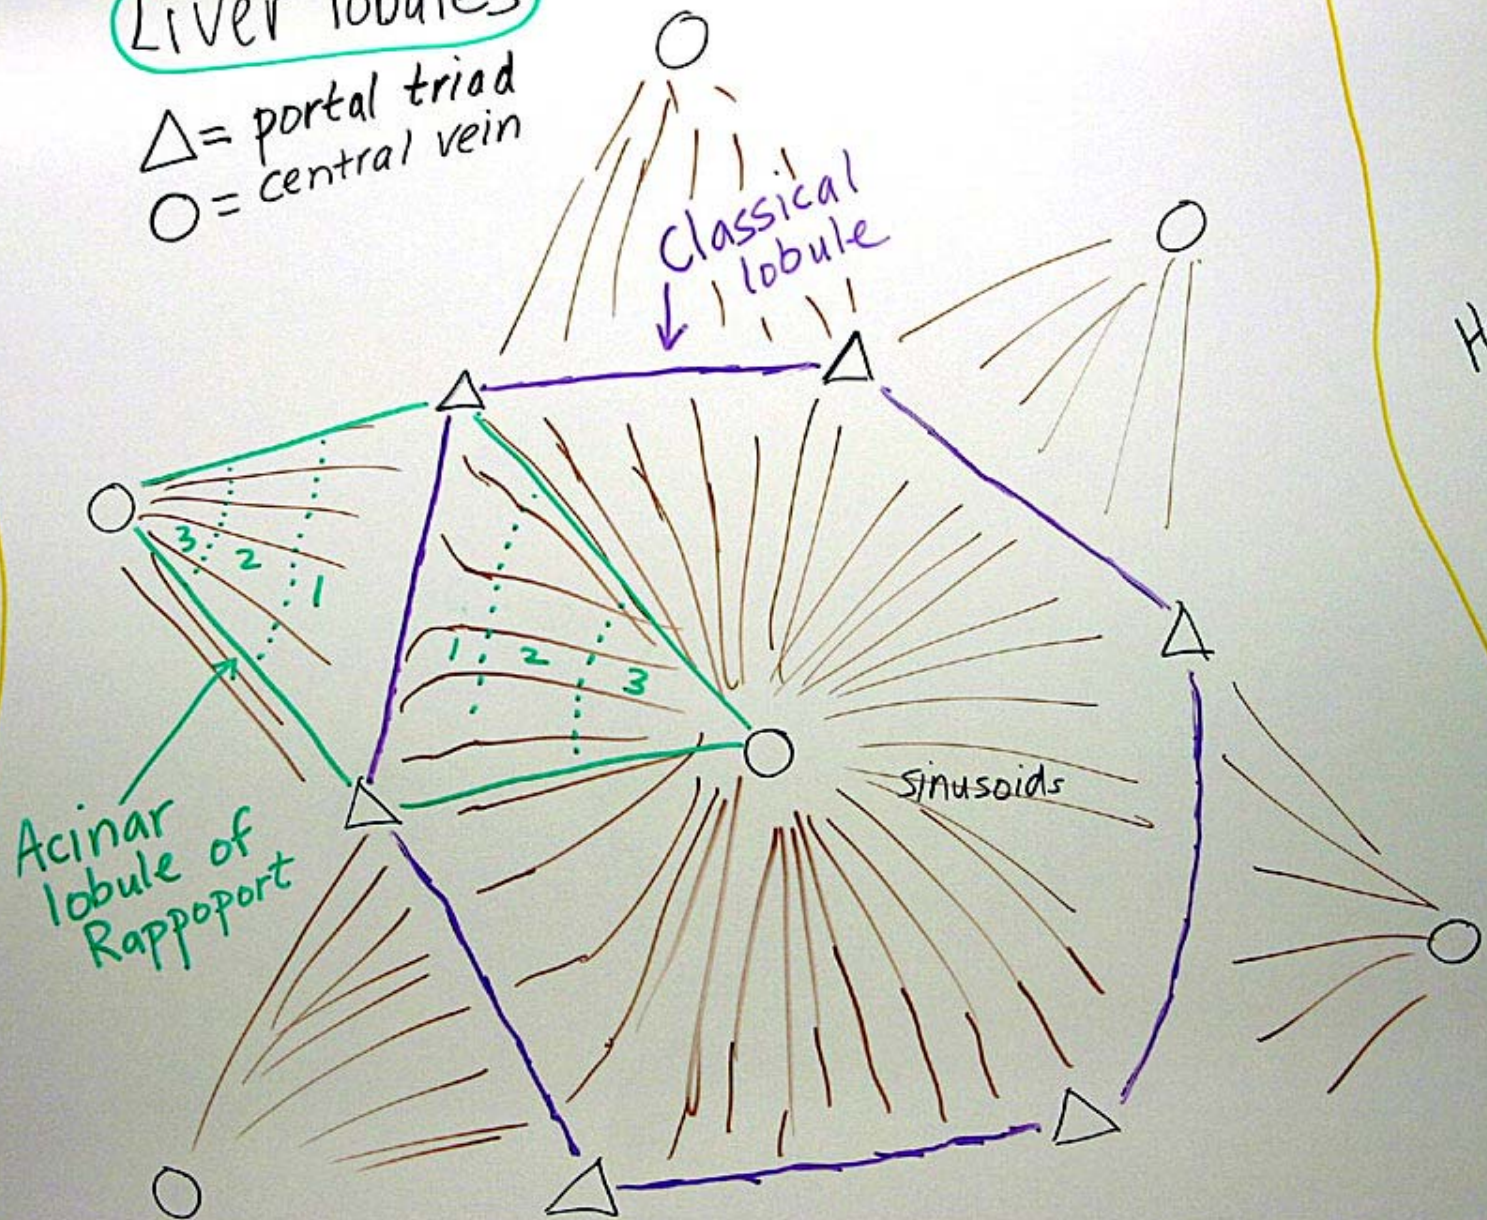 Liver lobules
△ = portal triad
○ = central vein
Classical
lobule
H
3
2
1
1
2
3
sinusoids
Acinar
lobule of
Rappoport